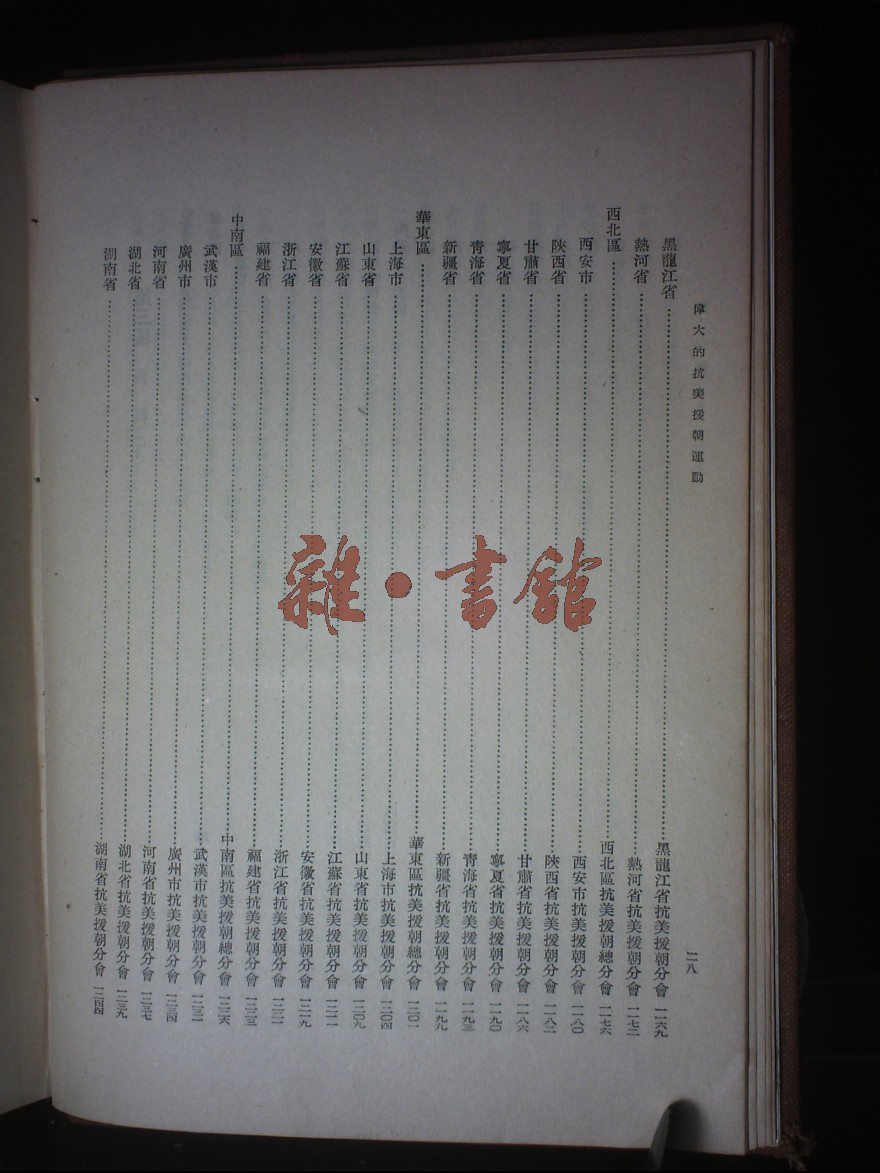 偉大的抗美援朝運動
二八
黑龍江省……黑龍江省抗美援朝分會 一一六九
熱河省……熱河省抗美援朝分會 一一七二
西北區……西北區抗美援朝總分會 一一七六
西安市……西安市抗美援朝分會 一一八〇
陝西省……陝西省抗美援朝分會 一一八二
甘肅省……甘肅省抗美援朝分會 一一八六
寧夏省……寧夏省抗美援朝分會 一一九〇
青海省……青海省抗美援朝分會 一一九三
新疆省……新疆省抗美援朝分會 一一九九
華東區……華東區抗美援朝總分會 一二〇一
上海市……上海市抗美援朝分會 一二〇四
山東省……山東省抗美援朝分會 一二〇九
江蘇省……江蘇省抗美援朝分會 一二一一
安徽省……安徽省抗美援朝分會 一二一九
浙江省……浙江省抗美援朝分會 一二二一
福建省……福建省抗美援朝分會 一二二三
中南區……中南區抗美援朝總分會 一二二六
武漢市……武漢市抗美援朝分會 一二三一
廣州市……廣州市抗美援朝分會 一二三四
河南省……河南省抗美援朝分會 一二三七
湖北省……湖北省抗美援朝分會 一二三九
湖南省……湖南省抗美援朝分會 一二四四
雜·書館